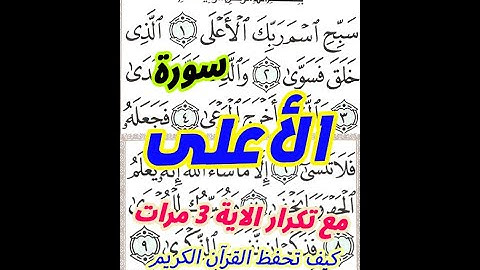 سَبِّحِ ٱسْمَ رَبِّكَ ٱلْأَعْلَى ١ ٱلَّذِى
خَلَقَ فَسَوَّىٰ ٢
سورة
٣ أَخْرَجَ ٱلْمَرْعَىٰ ٤ فَجَعَلَهُۥ
الأعلى
فَلَا تَنسَىٰٓ إِلَّا مَا شَآءَ ٱللَّهُ إِنَّهُۥ يَعْلَمُ
ٱلْجَهْرَ
مع تكرار الاية 3 مرات
٨ فَذَكِّرْ ٱلذِّكْرَىٰ ٩
كيف تحفظ القرآن الكريم